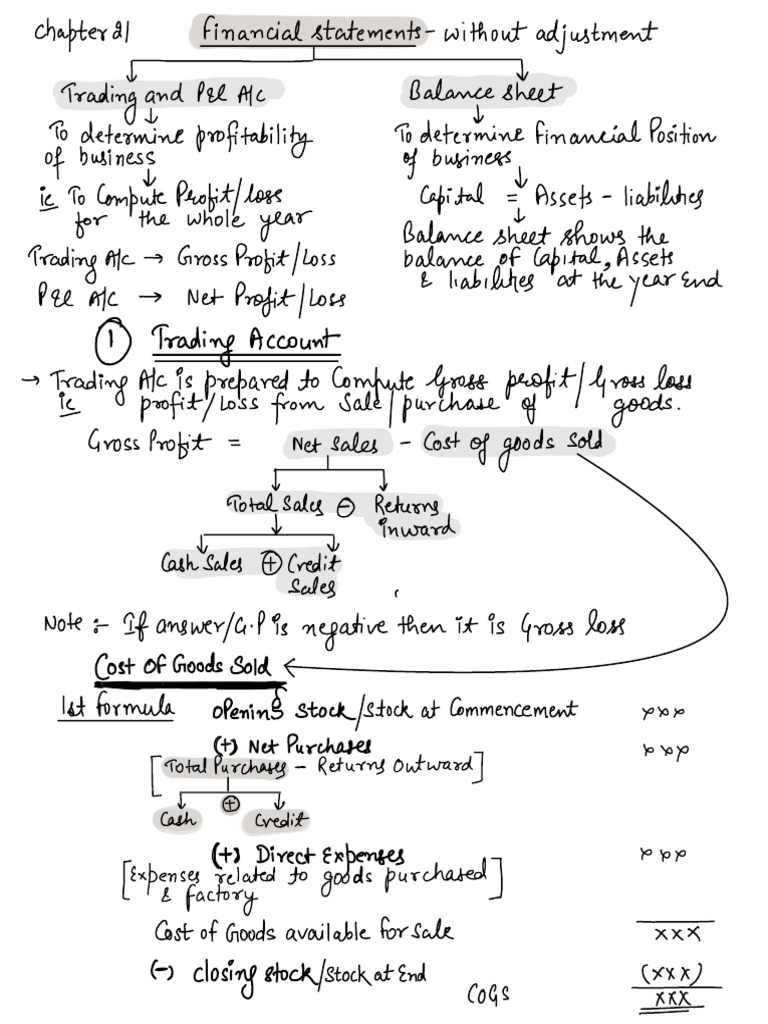 Chapter 21 Financial Statements - without adjustment
Trading and P&L A/c
Balance Sheet
To determine profitability
of business
ie To Compute Profit/Loss
for the whole year
Trading A/c → Gross Profit/Loss
P&L A/c → Net Profit/Loss
To determine Financial Position
of business
Capital = Assets - liabilities
Balance sheet shows the
balance of Capital, Assets
& liabilities at the year End
① Trading Account
→ Trading A/c is prepared to Compute Gross profit/Gross loss
ie profit/Loss from Sale/purchase of goods.
Gross Profit = Net Sales - Cost of goods sold
Total Sales ⊖ Returns
inward
Cash Sales ⊕ Credit
Sales
Note :- If answer/G.P is negative then it is Gross loss
Cost Of Goods Sold
1st formula Opening Stock/Stock at Commencement xxx
(+) Net Purchases xxx
[Total Purchases - Returns Outward]
Cash ⊕ Credit
(+) Direct Expenses xxx
[Expenses related to goods purchased
& factory]
Cost of Goods available for Sale xxx
(-) Closing Stock/Stock at End (xxx)
COGS xxx